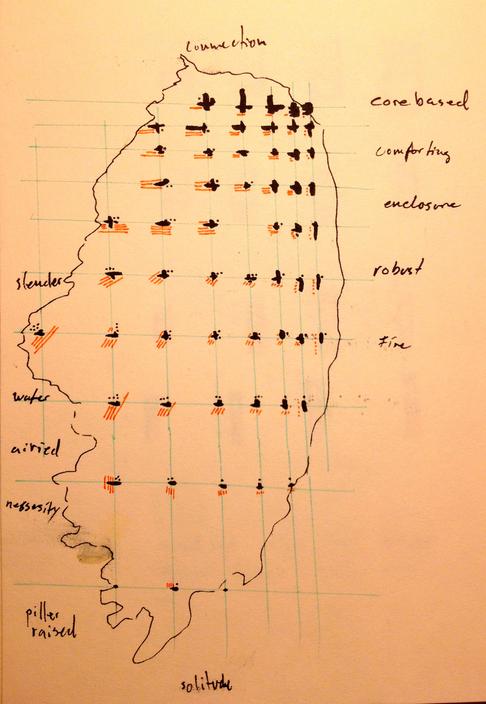 connection
core based
comforting
enclosure
slender
robust
fire
water
airied
nessesity
piller
raised
solitude